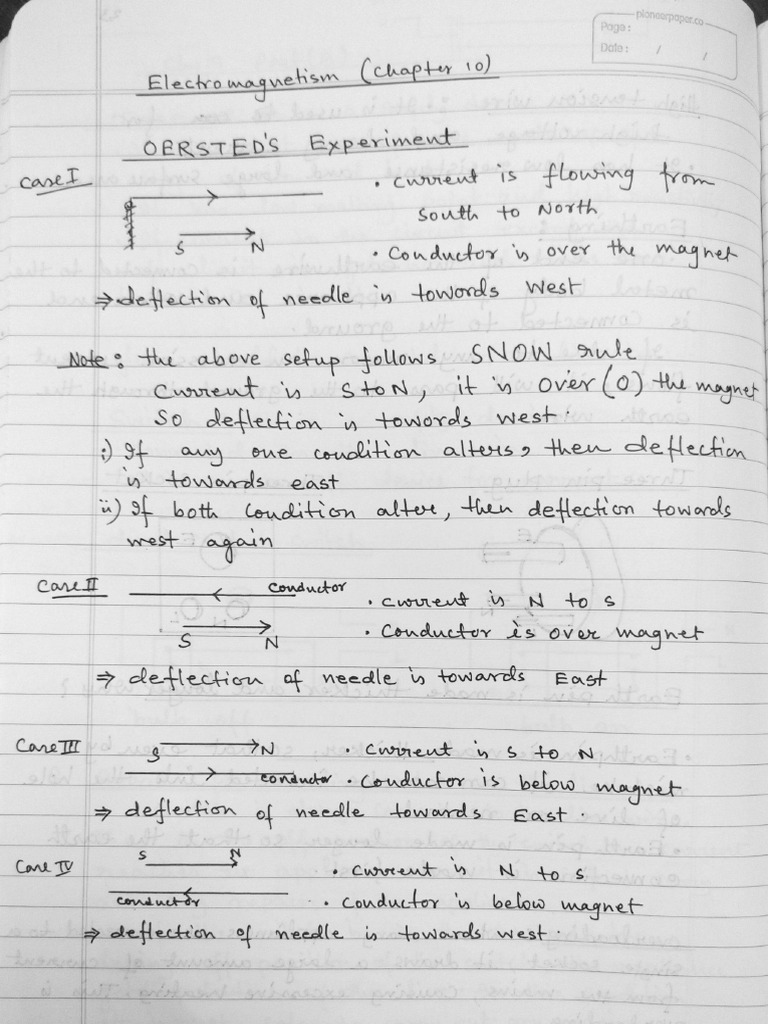 pioneerpaper.co
Page:
Date: / /
Electromagnetism (Chapter 10)
OERSTED'S Experiment
Case I
• Current is flowing from
South to North
S N
• Conductor is over the magnet
⇒ deflection of needle is towards West
Note: the above setup follows SNOW rule
Current is S to N, it is Over (O) the magnet
So deflection is towards west.
i) If any one condition alters, then deflection
is towards east
ii) If both condition alter, then deflection towards
west again
Case II conductor • Current is N to S
S N • Conductor is over magnet
⇒ deflection of needle is towards East
Case III S N • Current is S to N
conductor • Conductor is below magnet
⇒ deflection of needle towards East.
Case IV S N • Current is N to S
conductor • Conductor is below magnet
⇒ deflection of needle is towards west.